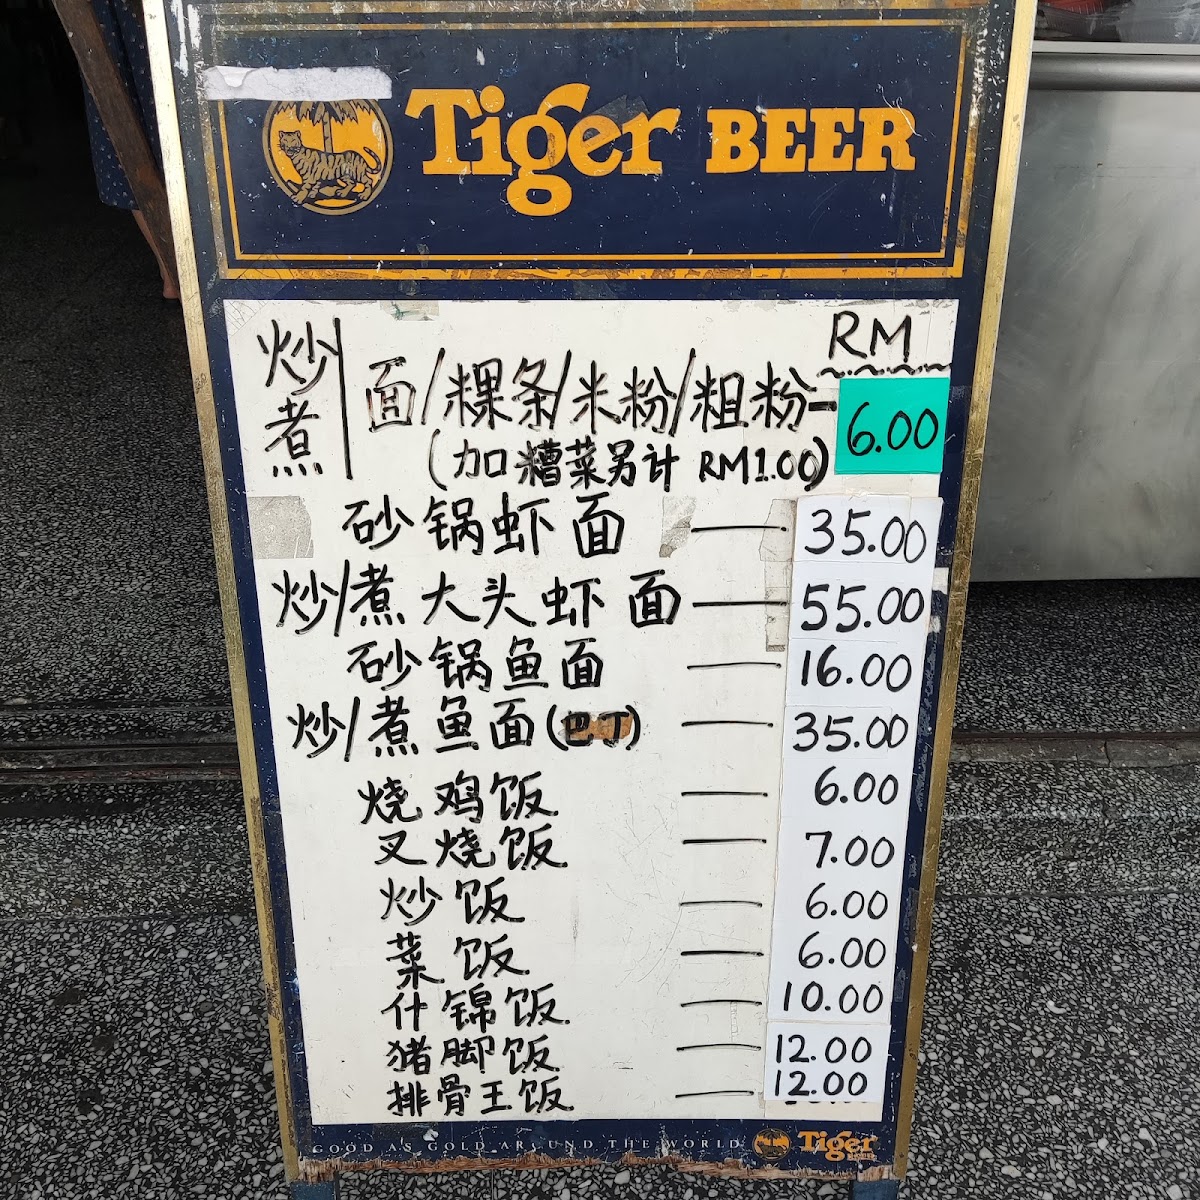 Tiger BEER
RM
炒/煮 面/粿条/米粉/粗粉- 6.00
(加糟菜另计 RM1.00)
砂锅虾面 — 35.00
炒/煮大头虾面 — 55.00
砂锅鱼面 — 16.00
炒/煮鱼面(巴丁) — 35.00
烧鸡饭 — 6.00
叉烧饭 — 7.00
炒饭 — 6.00
菜饭 — 6.00
什锦饭 — 10.00
猪脚饭 — 12.00
排骨王饭 — 12.00
GOOD AS GOLD AROUND THE WORLD Tiger